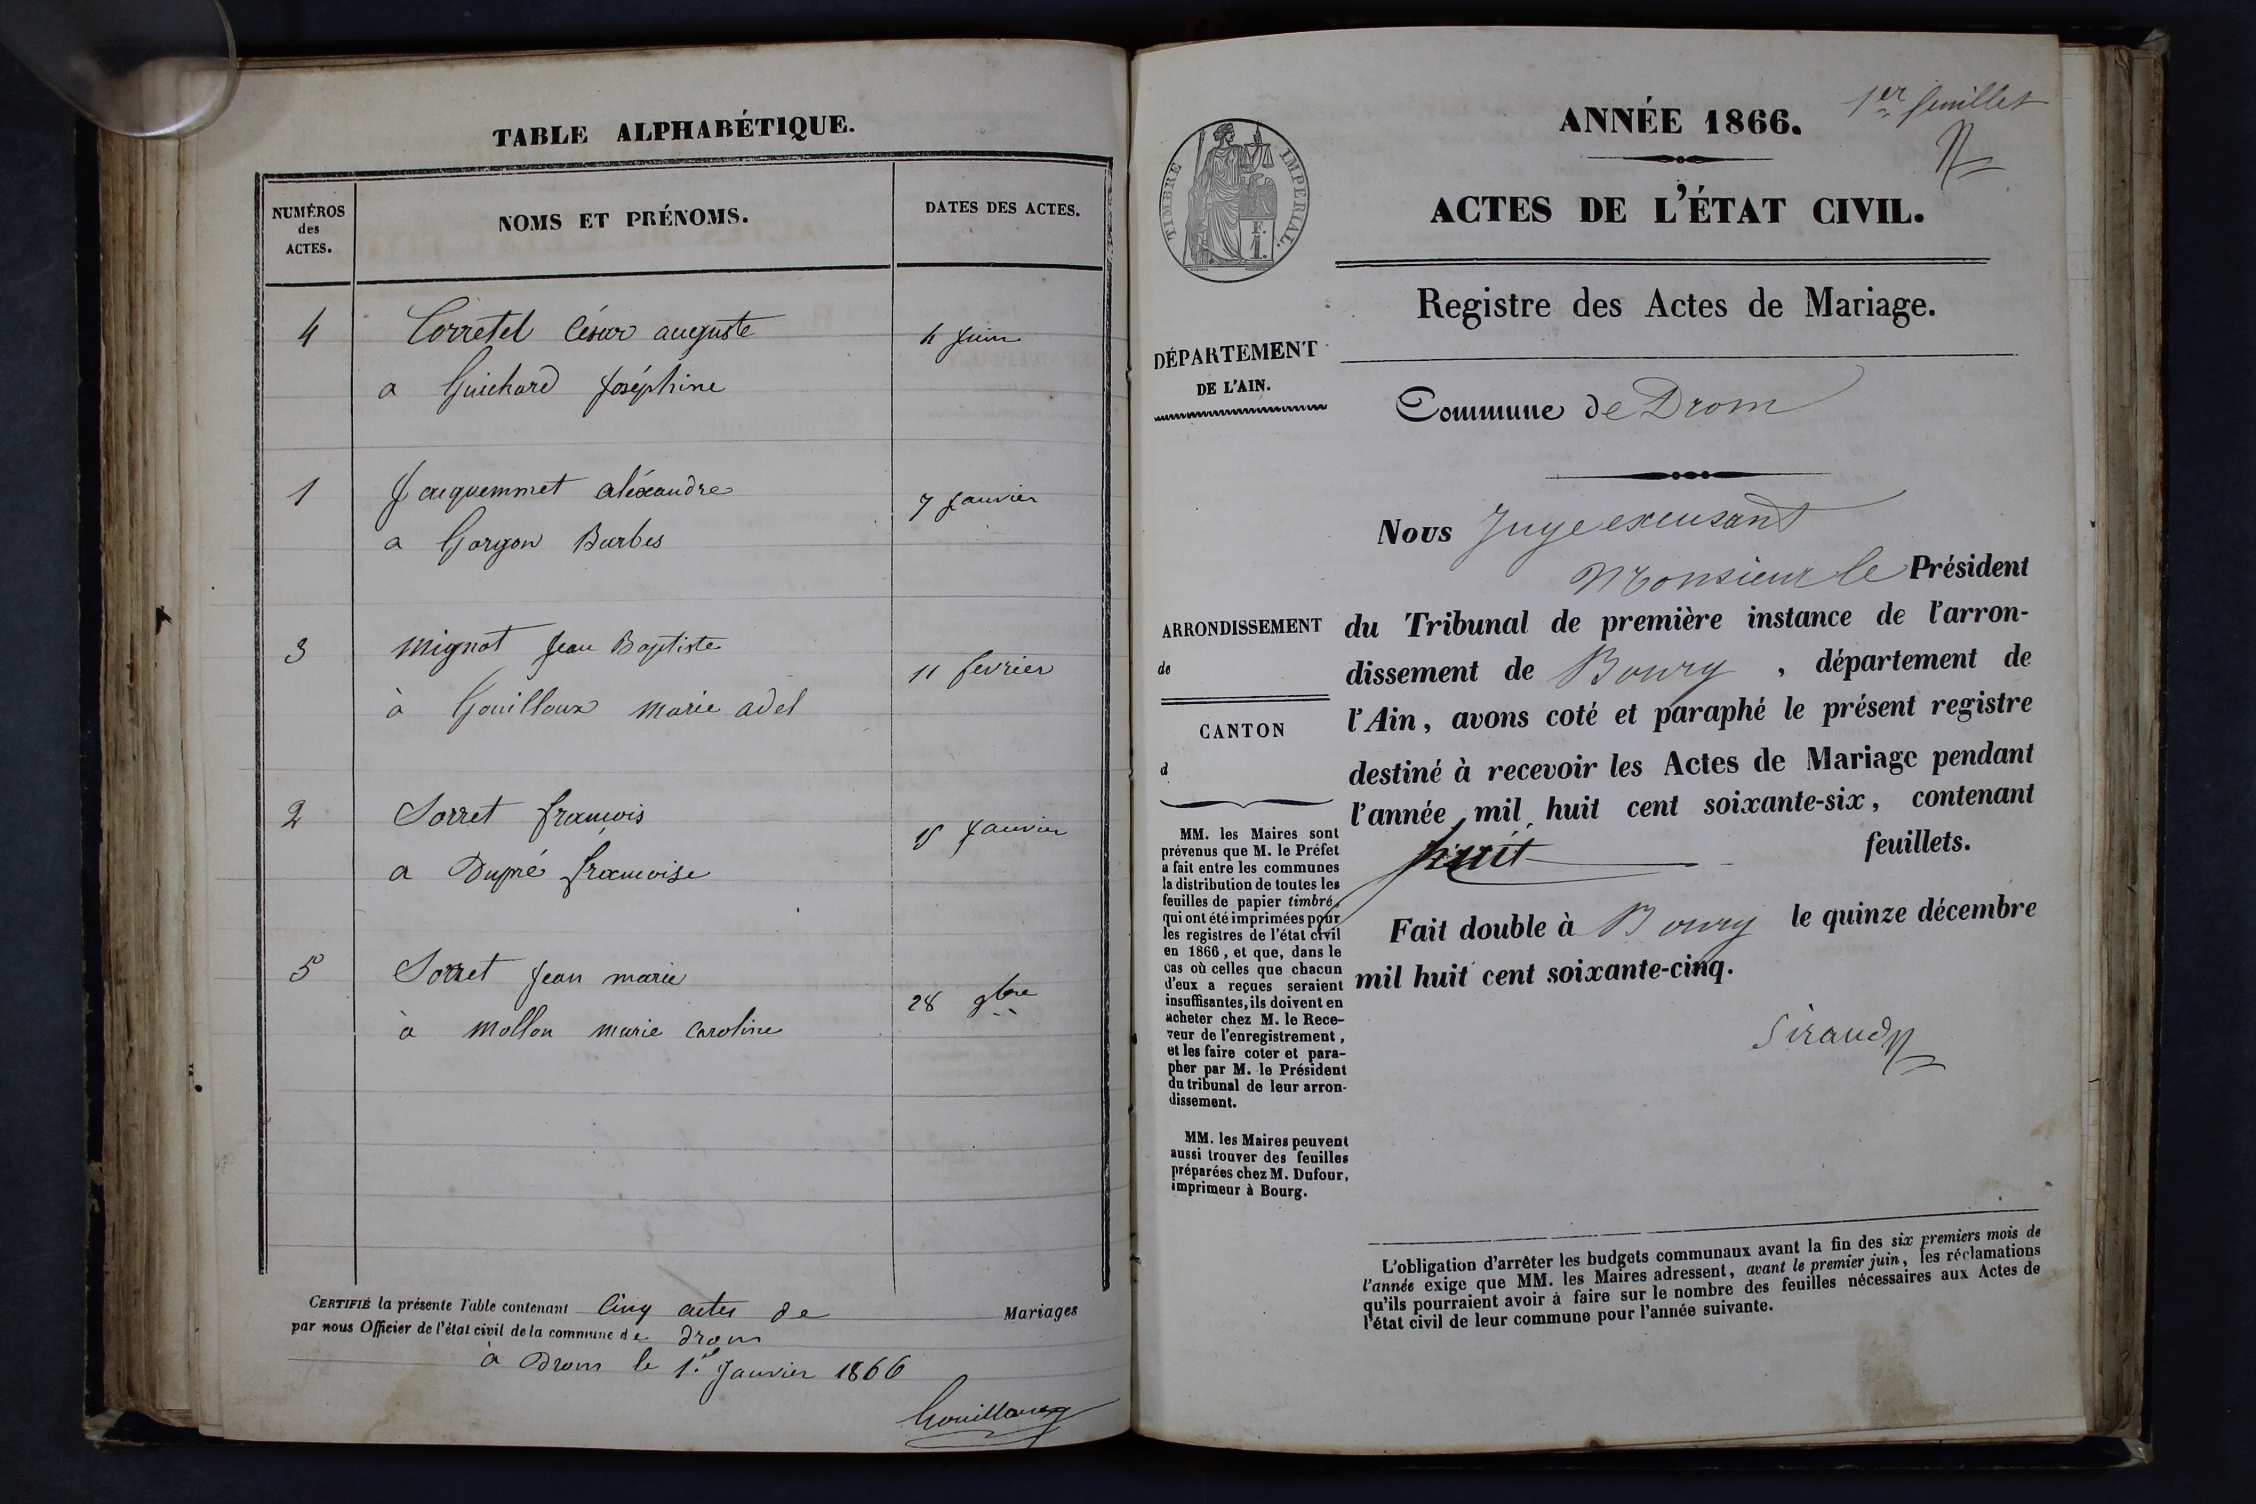 TABLE ALPHABÉTIQUE.
NUMÉROS
des
ACTES.
NOMS ET PRÉNOMS.
DATES DES ACTES.
4 Corretel César auguste 4 Juin
a Guichard Joséphine
1 Jacquemmet aléxandre 7 Janvier
a Gorgon Barbes
3 Mignot Jean Baptiste 11 fevrier
à Gouilloux Marie adel
2 Sorret françois 18 Janvier
a Dupré françoise
5 Sorret Jean marie 28 9bre
à Mollon Marie Caroline
CERTIFIÉ la présente Table contenant Cinq actes de Mariages
par nous Officier de l'état civil de la commune de drom
à Drom le 1er Janvier 1866
Gouilloux
1er feuillet
ANNÉE 1866.
ACTES DE L'ÉTAT CIVIL.
TIMBRE IMPERIAL.
F.
1.
Registre des Actes de Mariage.
DÉPARTEMENT
DE L'AIN.
Commune de Drom
Nous Juge excusant
Monsieur le Président
du Tribunal de première instance de l'arron-
dissement de Bourg, département de
l'Ain, avons coté et paraphé le présent registre
destiné à recevoir les Actes de Mariage pendant
l'année mil huit cent soixante-six, contenant
huit feuillets.
Fait double à Bourg le quinze décembre
mil huit cent soixante-cinq.
Siraud
ARRONDISSEMENT
de
CANTON
d
MM. les Maires sont
prévenus que M. le Préfet
a fait entre les communes
la distribution de toutes les
feuilles de papier timbré,
qui ont été imprimées pour
les registres de l'état civil
en 1866, et que, dans le
cas où celles que chacun
d'eux a reçues seraient
insuffisantes, ils doivent en
acheter chez M. le Rece-
veur de l'enregistrement,
et les faire coter et para-
pher par M. le Président
du tribunal de leur arron-
dissement.
MM. les Maires peuvent
aussi trouver des feuilles
préparées chez M. Dufour,
imprimeur à Bourg.
L'obligation d'arrêter les budgets communaux avant la fin des six premiers mois de
l'année exige que MM. les Maires adressent, avant le premier juin, les réclamations
qu'ils pourraient avoir à faire sur le nombre des feuilles nécessaires aux Actes de
l'état civil de leur commune pour l'année suivante.